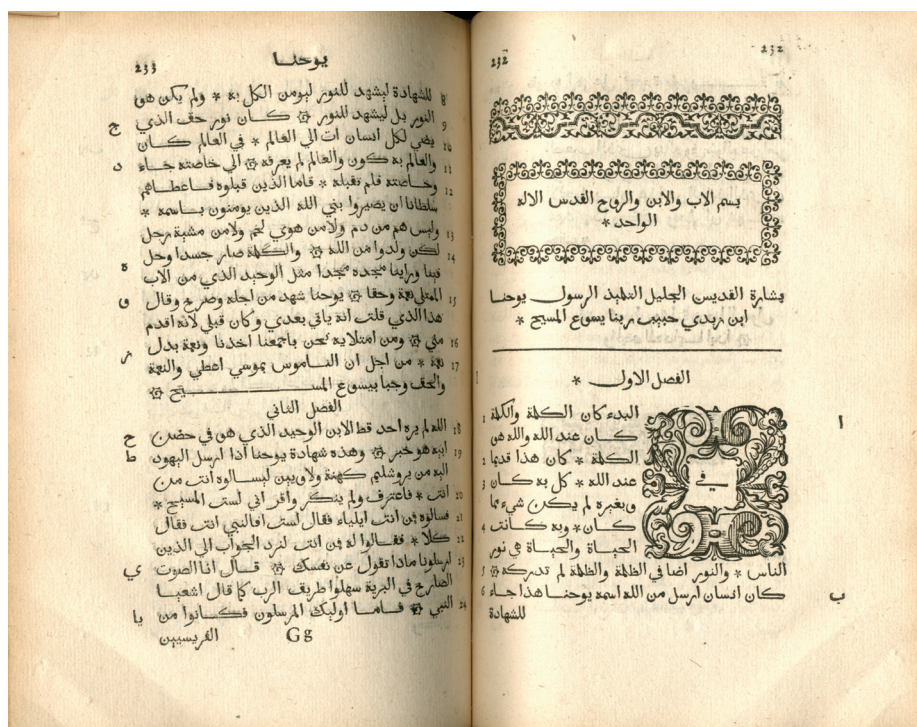 232
232
بسم الاب والابن والروح القدس الاله
الواحد *
بشارة القديس الجليل التلميذ الرسول يوحنا
ابن زبدي حبيب ربنا يسوع المسيح *
الفصل الاول *
في
ا
البدء كان الكلمة والكلمة 1
كان عند الله والله هو
الكلمة * كان هذا قديما 2
عند الله * كل به كان 3
وبغيره لم يكن شيء مما
كان * وبه كانت 4
الحياة والحياة هي نور
الناس * والنور اضا في الظلمة والظلمة لم تدركه 5
ب
كان انسان ارسل من الله اسمه يوحنا هذا جاء 6
للشهادة
يوحنا
233
للشهادة ليشهد للنور ليومن الكل به * ولم يكن هو 8
النور بل ليشهد للنور كان نور حق الذي 9
ج
يضي لكل انسان ات الي العالم * في العالم كان 10
والعالم به كون والعالم لم يعرفه الي خاصته جاء 11
د
وخاصته فلم تقبله * فاما الذين قبلوه فاعطاهم 12
سلطانا ان يصيروا بني الله الذين يومنون باسمه *
وليس هم من دم ولامن هوي لحم ولامن مشية رجل 13
لكن ولدوا من الله والكلمة صار جسدا وحل 14
فينا وراينا مجده مجدا مثل الوحيد الذي من الاب
ه
الممتلي نعمة وحقا يوحنا شهد من اجله وصرخ وقال 15
و
هذا الذي قلت انه ياتي بعدي وكان قبلي لانه اقدم
مني ومن امتلايه نحن باجمعنا اخذنا ونعمة بدل 16
نعمة * من اجل ان الناموس بموسي اعطي والنعمة 17
ز
والحق وجبا بيسوع المسيح
الفصل الثاني
الله لم يره احد قط الابن الوحيد الذي هو في حضن 18
ح
ابيه هو خبر وهذه شهادة يوحنا اذا ارسل اليهود 19
ط
اليه من يروشليم كهنة ولاويين ليسالوه انت من
انت * فاعترف ولم ينكر واقر اني لست المسيح * 20
فسالوه فمن انت ايلياء فقال لست افالنبي انت فقال 21
كلا * فقالوا له فمن انت لنرد الجواب الي الذين 22
ارسلونا ماذا تقول عن نفسك قال انا الصوت 23
ي
الصارخ في البرية سهلوا طريق الرب كما قال اشعيا
النبي فاما اوليك المرسلون فكانوا من 24
يا
Gg
الفريسيين